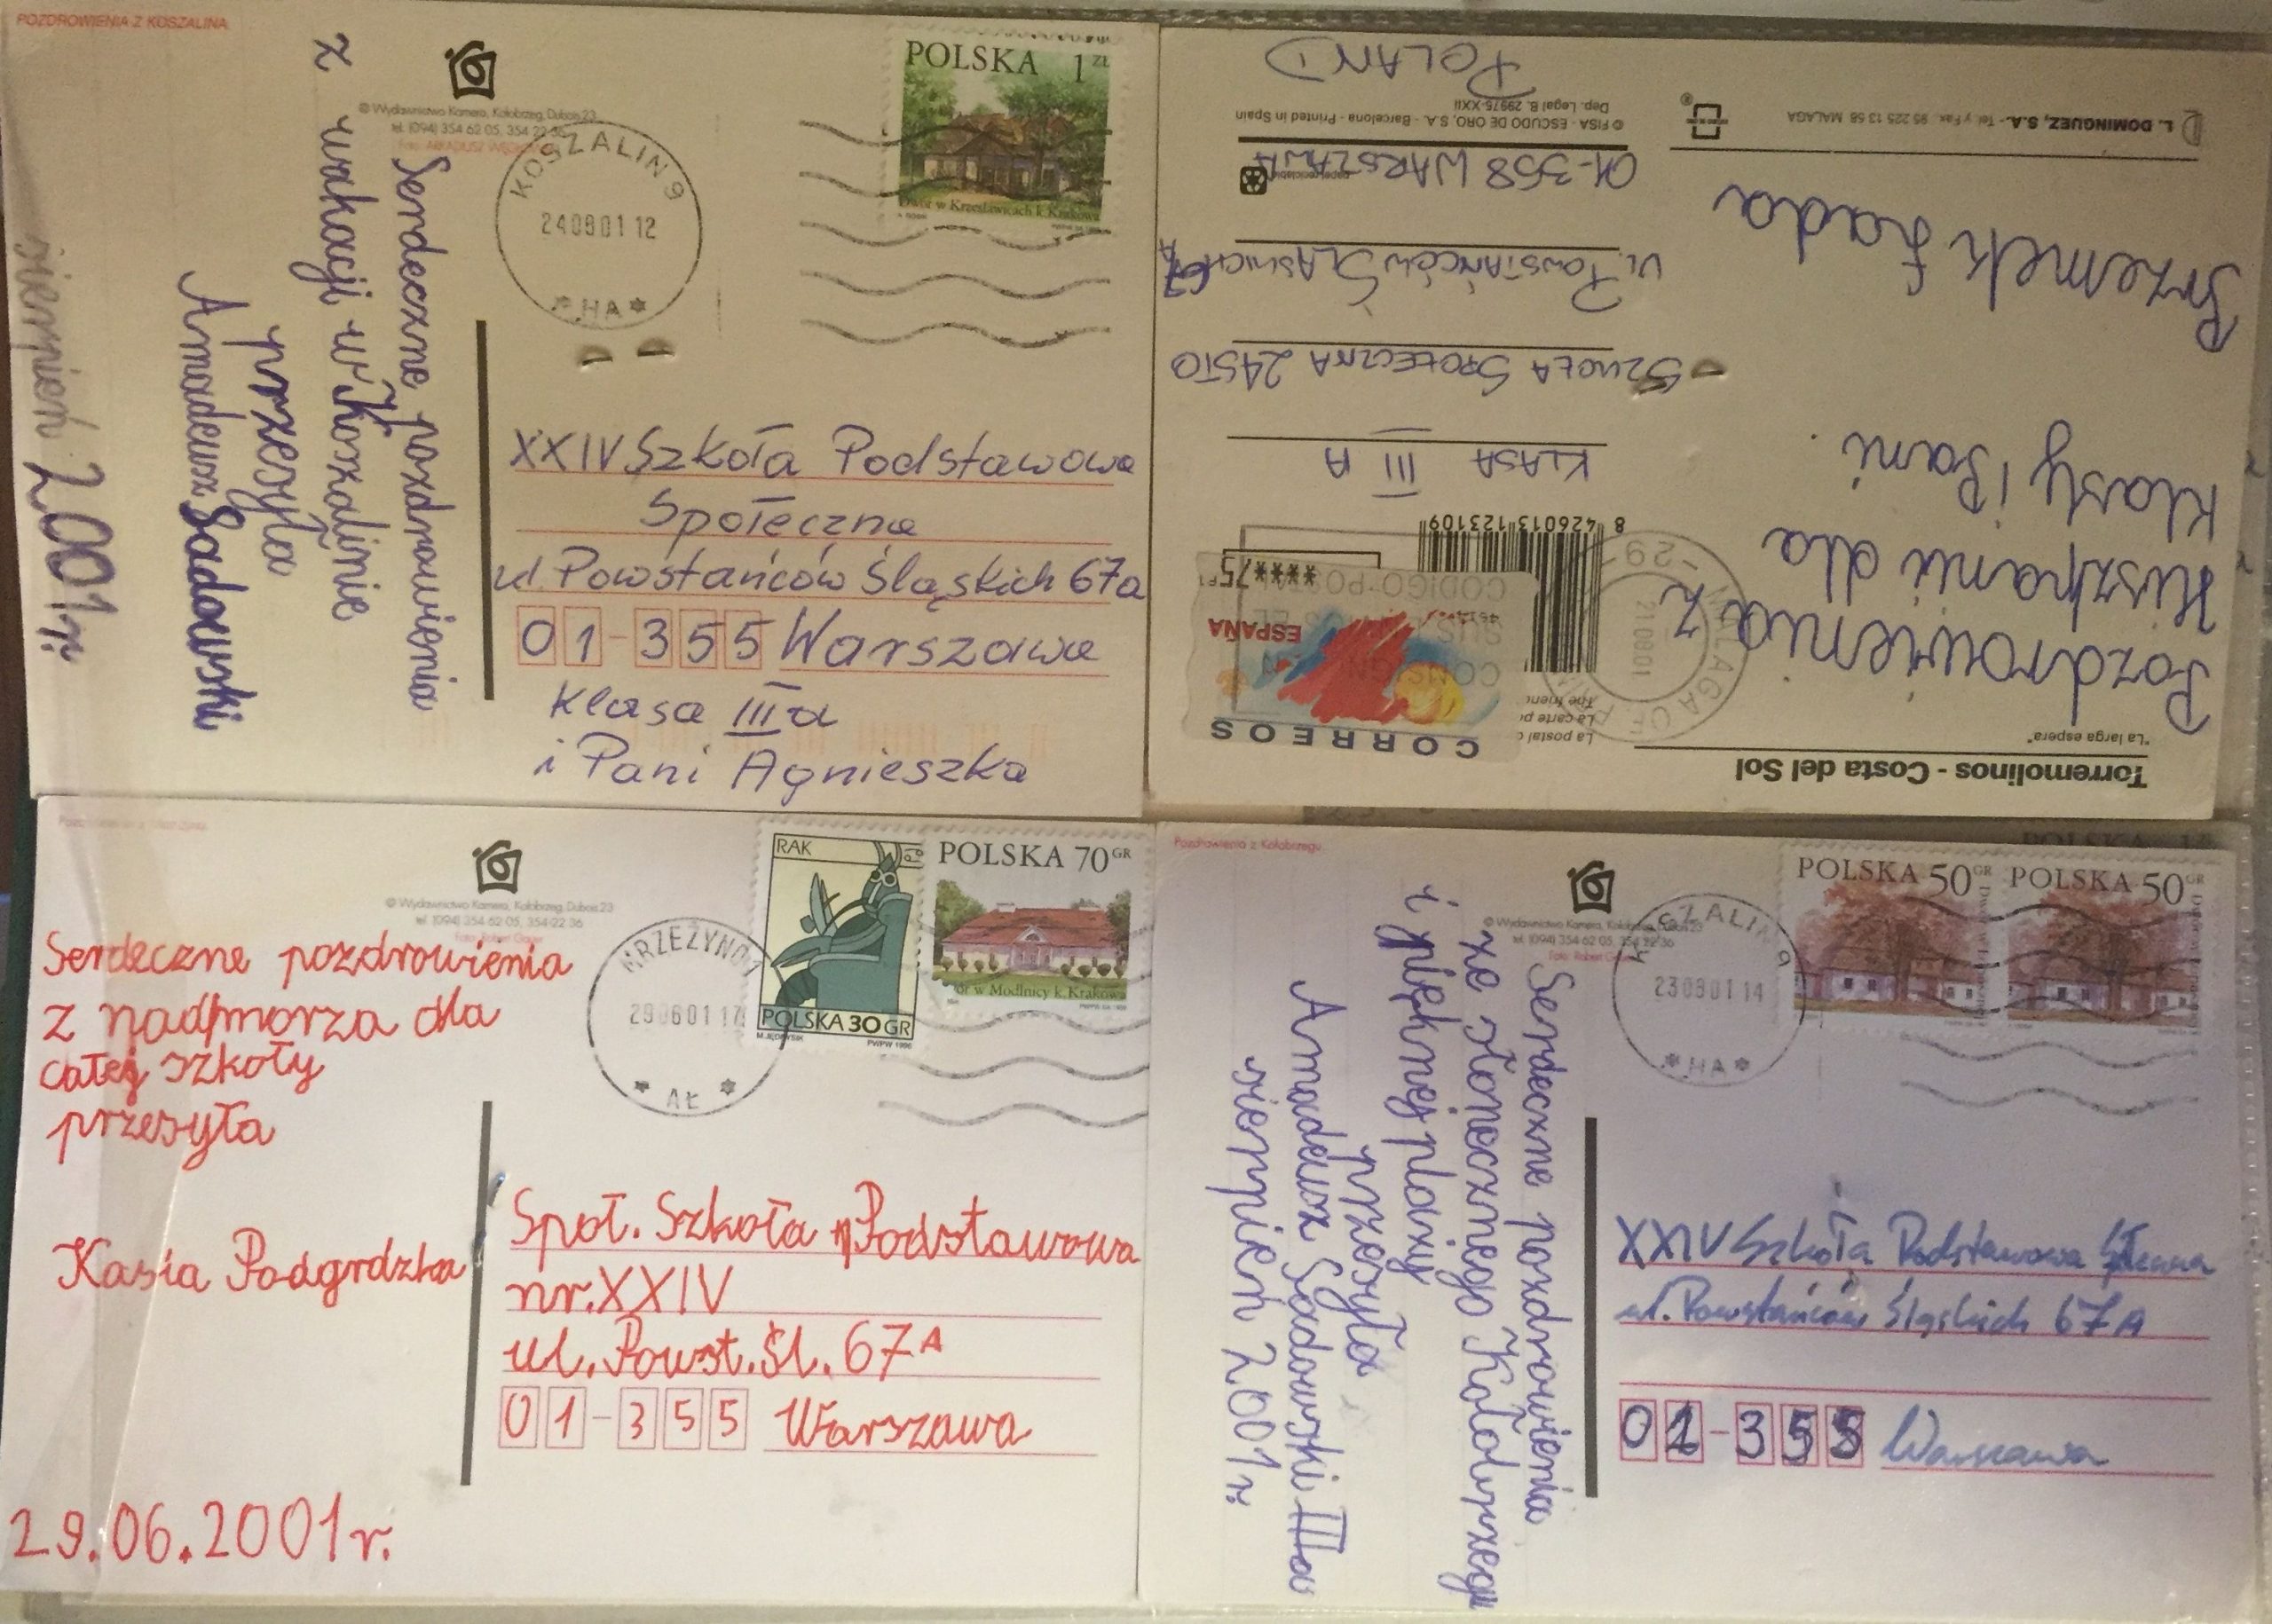 POZDROWIENIA Z KOSZALINA
© Wydawnictwo Kamera, Kołobrzeg, Dubois 23
tel. (094) 354 62 05, 354 22 36
POLSKA 1 ZŁ
Dwór w Krzesławicach k. Krakowa
KOSZALIN 9
240801 12
* HA *
Serdeczne pozdrowienia
z wakacji w Koszalinie
przesyła
Amadeusz Sadowski
sierpień 2001r.
XXIV Szkoła Podstawowa
Społeczna
ul. Powstańców Śląskich 67a
01-355 Warszawa
Klasa III a
i Pani Agnieszka
Torremolinos - Costa del Sol
"La larga espera"
Pozdrowienia z
Hiszpanii dla
Klasy i Pani.
Przemek Łada
L. DOMINGUEZ, S.A. - Tel. y Fax. 95 225 13 58 MALAGA
CORREOS
ESPAÑA
****75
MALAGA
210801
-29-
La postal
La carte
8 426013 123109
KLASA III A
SZKOŁA SPOŁECZNA 24STO
UL. POWSTAŃCÓW ŚLĄSKICH 67A
01-358 WARSZAWA
papel reciclable
© FISA - ESCUDO DE ORO, S.A. - Barcelona - Printed in Spain
Dep. Legal B. 29975-XXII
POLAND
© Wydawnictwo Kamera, Kołobrzeg, Dubois 23
tel. (094) 354 62 05, 354 22 36
RAK
POLSKA 30 GR
PWPW 1996
POLSKA 70 GR
Dwór w Modlnicy k. Krakowa
MRZEŻYNO 1
290601 17
* AŁ *
Serdeczne pozdrowienia
z nadmorza dla
całej szkoły
przesyła
Kasia Podgrdzka
29.06.2001r.
Społ. Szkoła Podstawowa
nr. XXIV
ul. Powst. Śl. 67A
01-355 Warszawa
Pozdrowienia z Kołobrzegu
© Wydawnictwo Kamera, Kołobrzeg, Dubois 23
tel. (094) 354 62 05, 354 22 36
Foto: Robert
POLSKA 50 GR
POLSKA 50 GR
KOSZALIN 9
230801 14
* HA *
Serdeczne pozdrowienia
ze słonecznego Kołobrzegu
i pięknej plaży
przesyła
Amadeusz Sadowski IIIa
sierpień 2001r.
XXIV Szkoła Podstawowa
ul. Powstańców Śląskich 67A
01-355 Warszawa